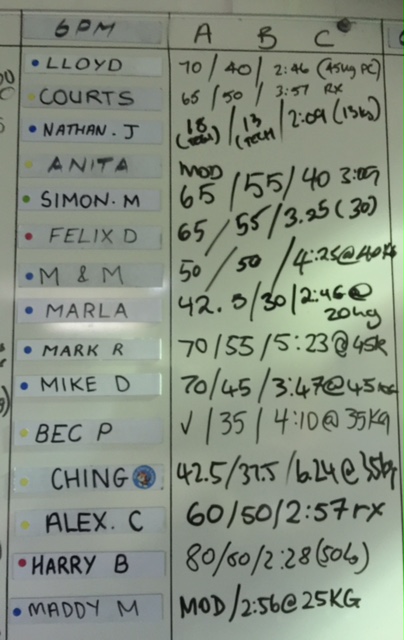 6PM A B C
LLOYD 70/40/2:46 (45kg PC)
COURTS 65/50/3:57 RX
NATHAN. J 18 (TECH) / 13 (TECH) / 2:09 (15kg)
ANITA MOD
SIMON. M 65/55/40 3:09
FELIX D 65/55/3.25(30)
M & M 50/50/4:25@40kg
MARLA 42.5/30/2:46@
20kg
MARK R 70/55/5:23@45k
MIKE D 70/45/3:47@45kg
BEC P √/35/4:10@35Kg
CHING 42.5/37.5/6.24@35kg
ALEX. C 60/50/2:57 rx
HARRY B 80/60/2:28(50kg)
MADDY M MOD/2:56@25KG